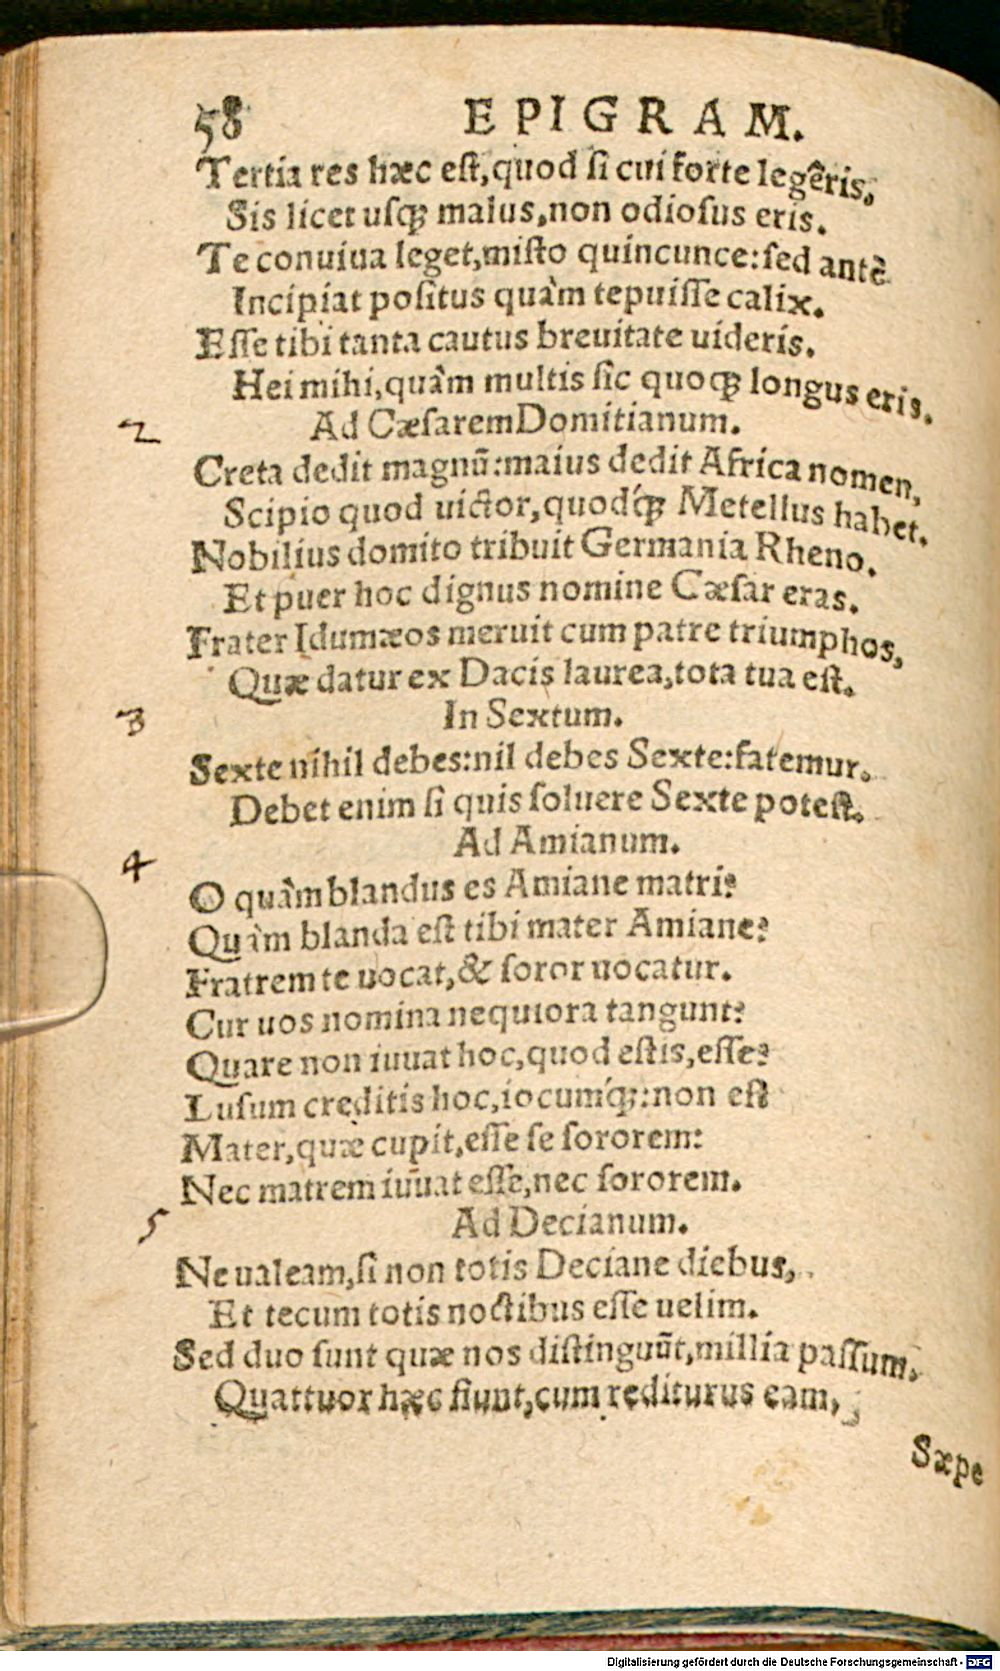 58 EPIGRAM.
Tertia res hæc est, quod si cui forte legêris,
Sis licet usq́; malus, non odiosus eris.
Te conuiua leget, misto quincunce: sed antè
Incipiat positus quàm tepuisse calix.
Esse tibi tanta cautus breuitate uideris.
Hei mihi, quàm multis sic quoq; longus eris.
2 Ad Cæsarem Domitianum.
Creta dedit magnũ: maius dedit Africa nomen,
Scipio quod uictor, quodq́; Metellus habet.
Nobilius domito tribuit Germania Rheno.
Et puer hoc dignus nomine Cæsar eras.
Frater Idumæos meruit cum patre triumphos,
Quæ datur ex Dacis laurea, tota tua est.
3 In Sextum.
Sexte nihil debes: nil debes Sexte: fatemur.
Debet enim si quis soluere Sexte potest.
4 Ad Amianum.
O quàm blandus es Amiane matri?
Quàm blanda est tibi mater Amiane?
Fratrem te uocat, & soror uocatur.
Cur uos nomina nequiora tangunt?
Quare non iuuat hoc, quod estis, esse?
Lusum creditis hoc, iocumq́;: non est
Mater, quæ cupit, esse se sororem:
Nec matrem iuuat esse, nec sororem.
5 Ad Decianum.
Ne ualeam, si non totis Deciane diebus,
Et tecum totis noctibus esse uelim.
Sed duo sunt quæ nos distinguũt, millia passum.
Quattuor hæc fiunt, cum rediturus eam,
Sæpe
Digitalisierung gefördert durch die Deutsche Forschungsgemeinschaft - DFG